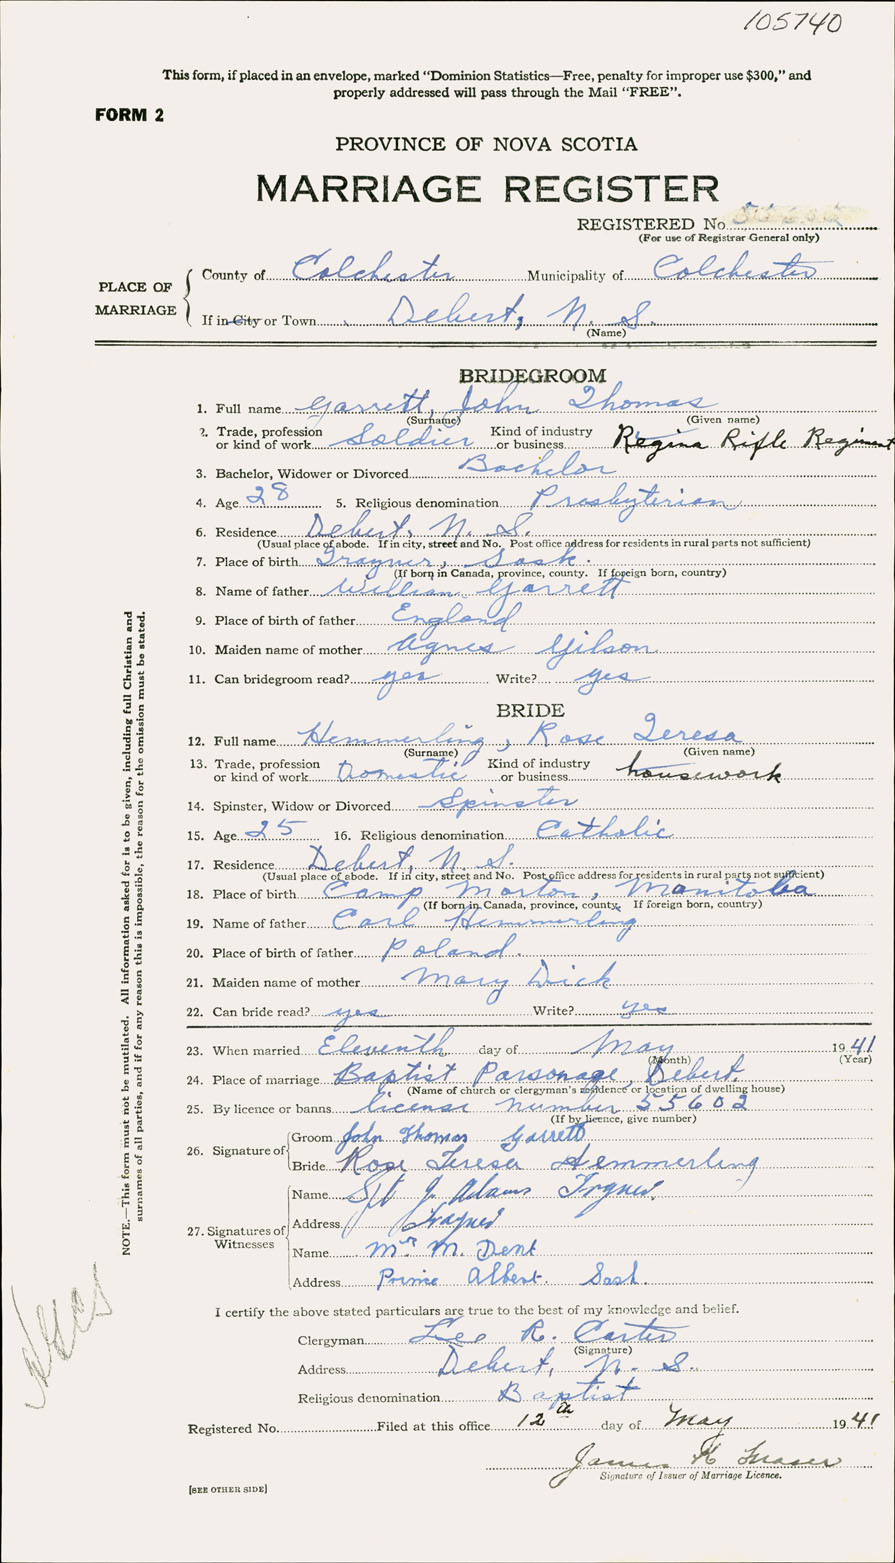 105740
This form, if placed in an envelope, marked “Dominion Statistics—Free, penalty for improper use $300,” and
properly addressed will pass through the Mail “FREE”.
FORM 2
PROVINCE OF NOVA SCOTIA
MARRIAGE REGISTER
REGISTERED No
(For use of Registrar General only)
PLACE OF MARRIAGE
County of Colchester Municipality of Colchester
If in City or Town Debert, N. S.
(Name)
BRIDEGROOM
1. Full name Garrett, John Thomas
(Surname) (Given name)
2. Trade, profession Kind of industry
or kind of work Soldier or business Regina Rifle Regiment
3. Bachelor, Widower or Divorced Bachelor
4. Age 28 5. Religious denomination Presbyterian
6. Residence Debert, N. S.
(Usual place of abode. If in city, street and No. Post office address for residents in rural parts not sufficient)
7. Place of birth Sask.
(If born in Canada, province, county. If foreign born, country)
8. Name of father William Garrett
9. Place of birth of father England
10. Maiden name of mother Agnes Gilson
11. Can bridegroom read? yes Write? yes
BRIDE
12. Full name Hemmerling, Rose Teresa
(Surname) (Given name)
13. Trade, profession Kind of industry
or kind of work Domestic or business housework
14. Spinster, Widow or Divorced Spinster
15. Age 25 16. Religious denomination Catholic
17. Residence Debert, N. S.
(Usual place of abode. If in city, street and No. Post office address for residents in rural parts not sufficient)
18. Place of birth Camp Morton, Manitoba
(If born in Canada, province, county. If foreign born, country)
19. Name of father Carl Hemmerling
20. Place of birth of father Poland.
21. Maiden name of mother Mary Dick
22. Can bride read? yes Write? yes
23. When married Eleventh day of May 1941
(Month) (Year)
24. Place of marriage Baptist Parsonage, Debert.
(Name of church or clergyman's residence or location of dwelling house)
25. By licence or banns license number 55602
(If by licence, give number)
26. Signature of
Groom John Thomas Garrett
Bride Rose Teresa Hemmerling
27. Signatures of Witnesses
Name J. Adams
Address
Name M. Dent
Address Prince Albert. Sask.
I certify the above stated particulars are true to the best of my knowledge and belief.
Clergyman Lee R. Carter
(Signature)
Address Debert, N. S.
Religious denomination Baptist
Registered No. Filed at this office 12th day of May 1941
James K Fraser
Signature of Issuer of Marriage Licence.
[SEE OTHER SIDE]
NOTE.—This form must not be mutilated. All information asked for is to be given, including full Christian and
surnames of all parties, and if for any reason this is impossible, the reason for the omission must be stated.